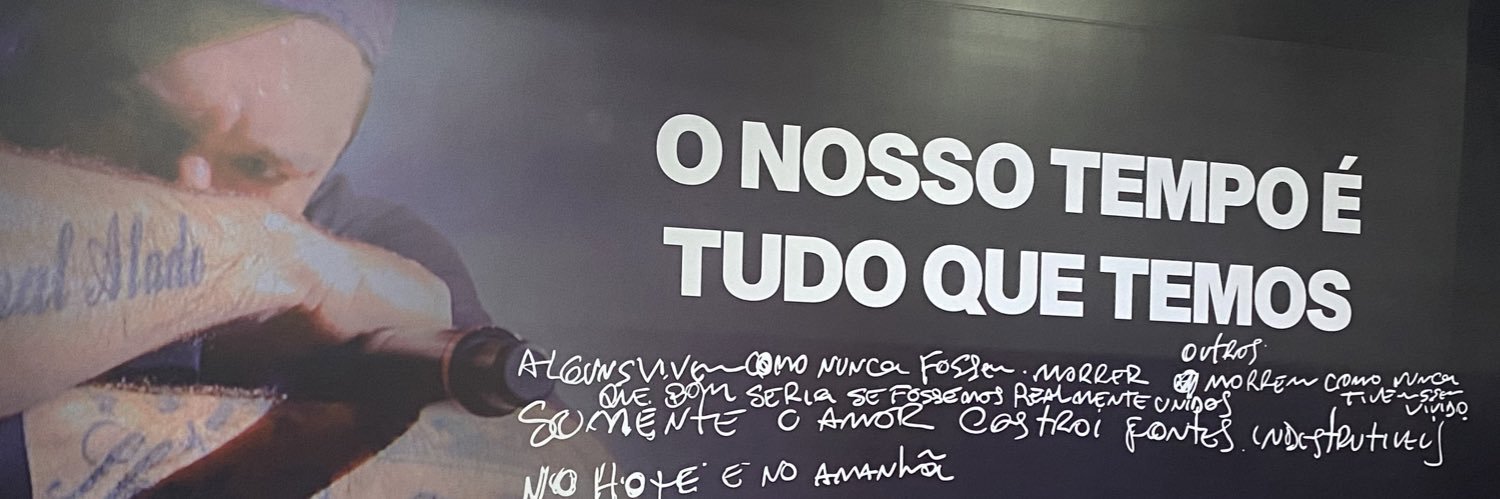 O NOSSO TEMPO É
TUDO QUE TEMOS
ALGUNS VIVEM COMO NUNCA FOSSEM MORRER OUTROS MORREM COMO NUNCA TIVESSEM VIVIDO
QUE BOM SERIA SE FOSSEMOS REALMENTE UNIDOS
SOMENTE O AMOR CASTROI FONTES INDESTRUTIVEIS
NO HOJE E NO AMANHÃ